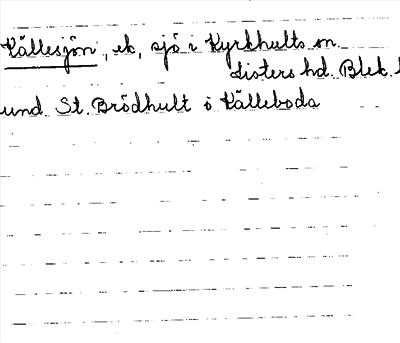 Källesjön, ek, sjö i Kyrkhults sn.
Listers hd. Blek.
und. St. Brödhult o Källeboda